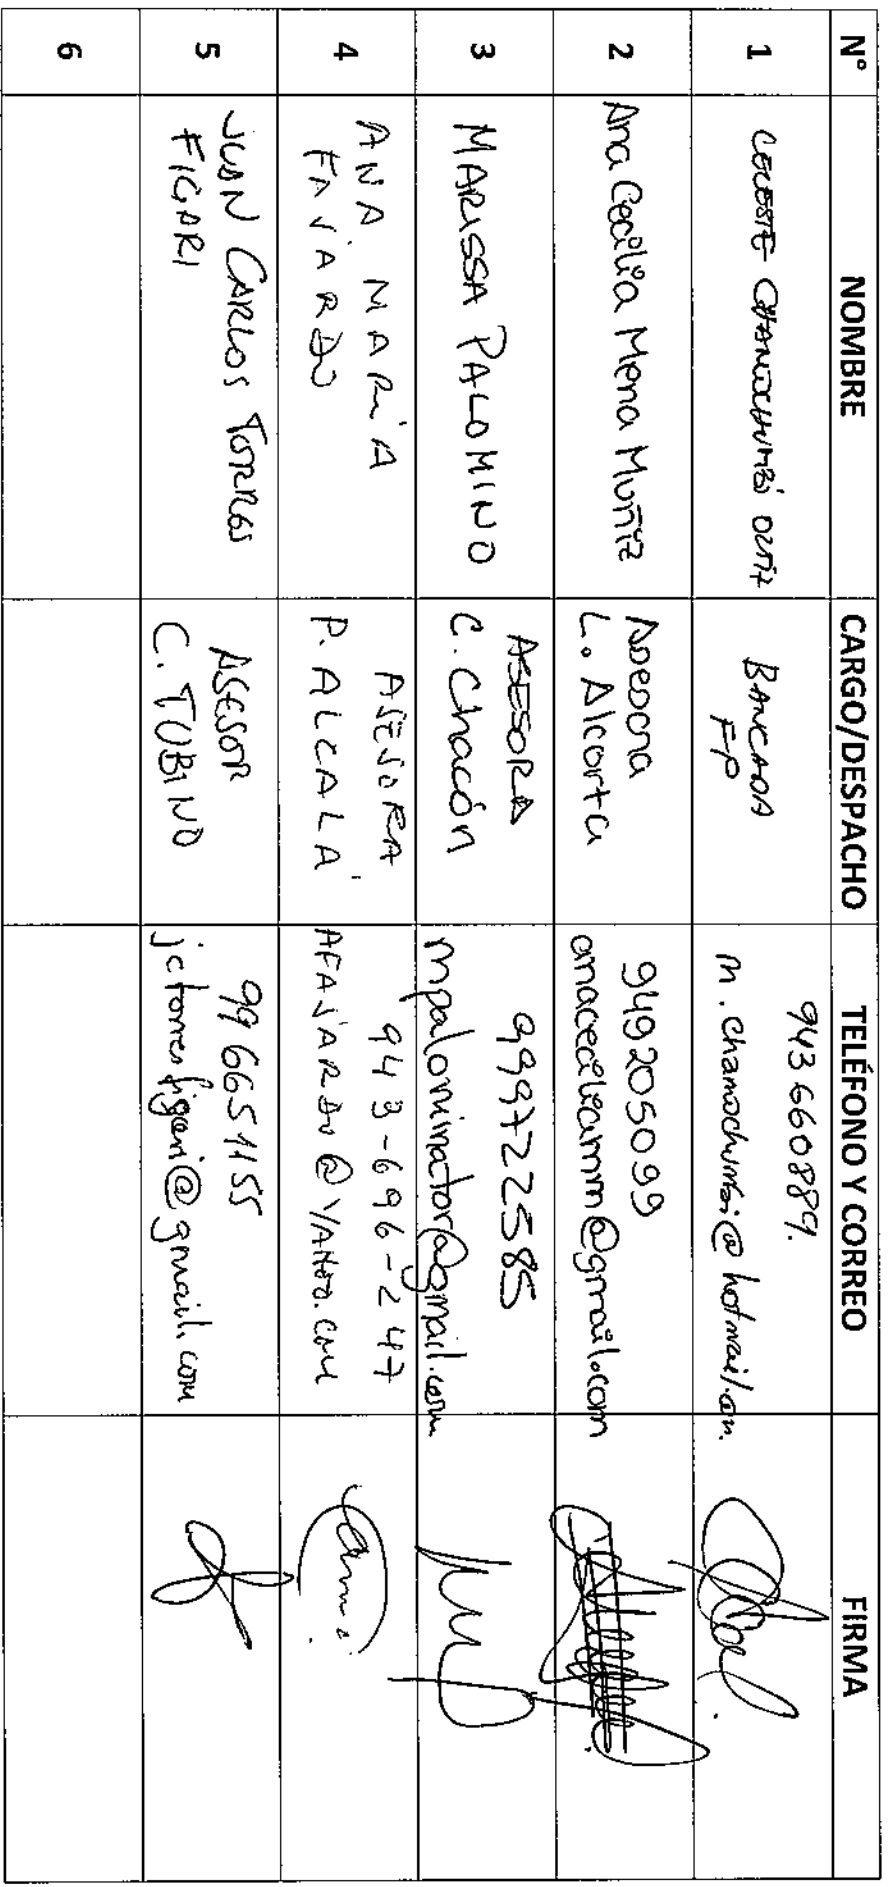 N° NOMBRE CARGO/DESPACHO TELÉFONO Y CORREO FIRMA
1 CELESTE CHAMOCHUMBI ORTIZ BANCADA FP 943660889.
m.chamochumbi@hotmail.com.
2 Ana Cecilia Mena Muñiz Asesora L. Alcorta 949205099
anaceciliamm@gmail.com
3 MARISSA PALOMINO ASESORA C. Chacón 999722585
mpalominator@gmail.com
4 ANA MARÍA FAJARDO ASESORA P. ALCALÁ 943-696-247
AFAJARDO@YAHOO.COM
5 JUAN CARLOS TORRES FIGARI ASESOR C. TUBINO 996651155
jctorresfigari@gmail.com
6